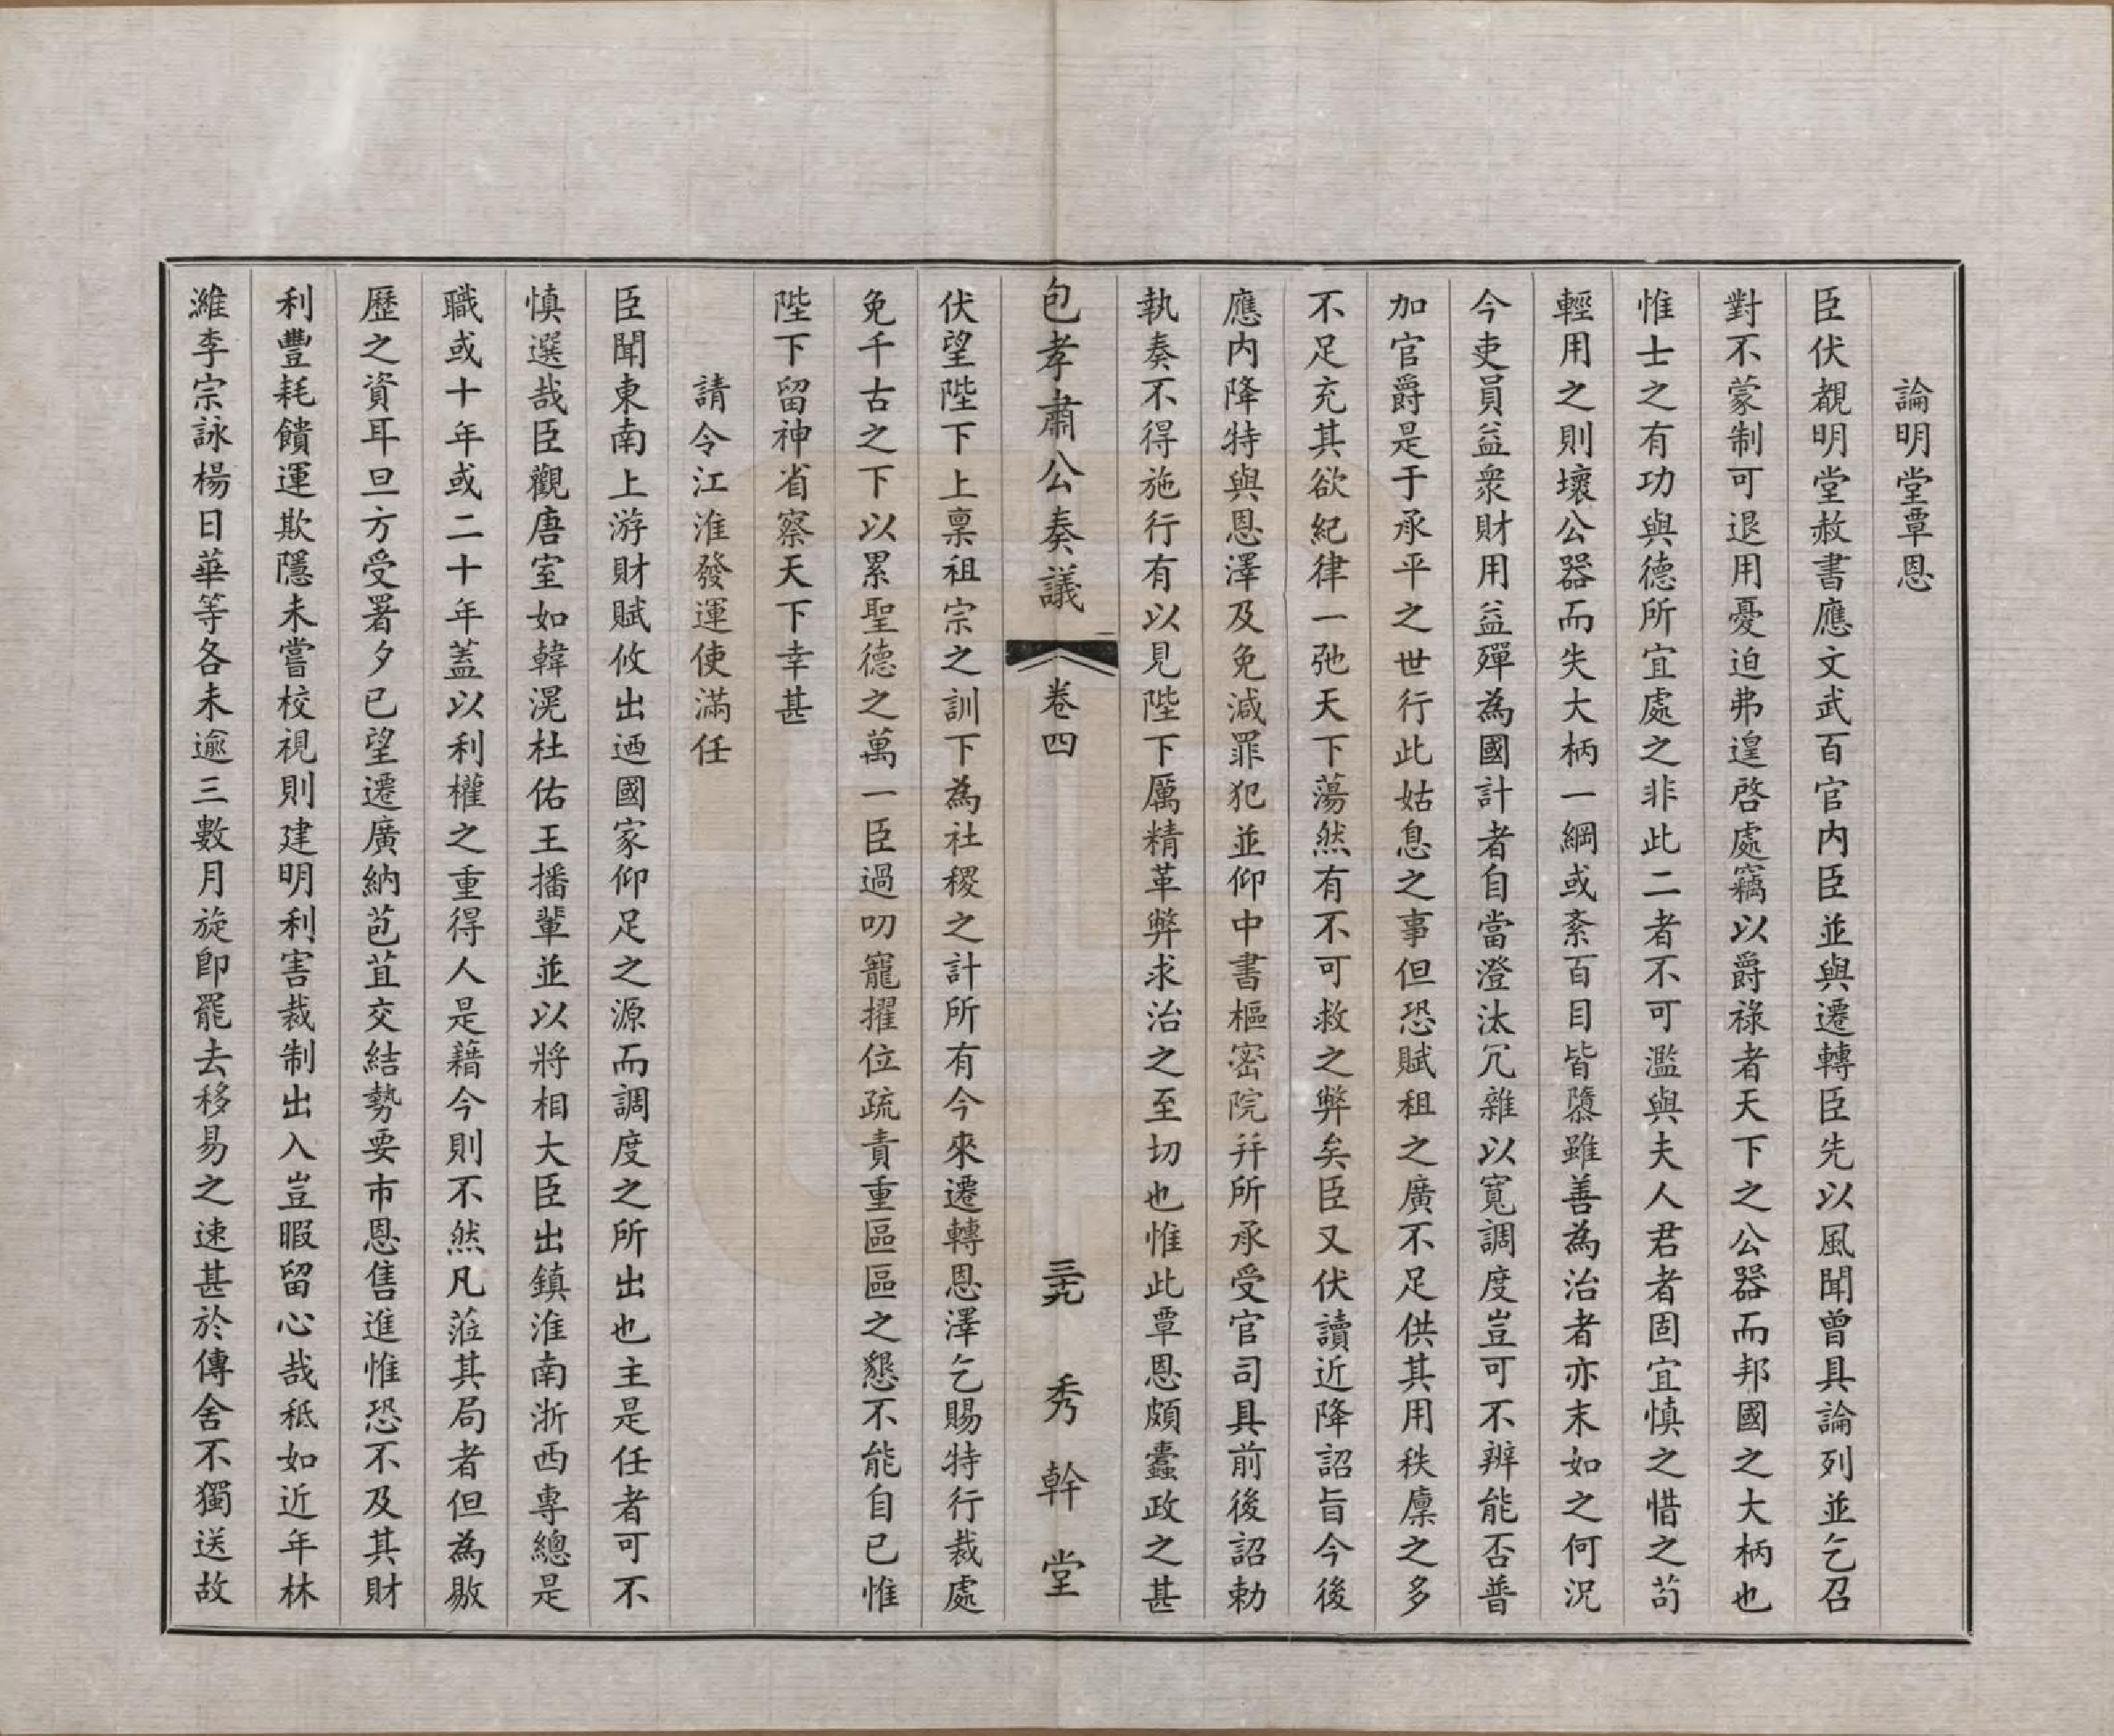 論明堂覃恩
臣伏覩明堂赦書應文武百官内臣並與遷轉臣先以風聞曾具論列並乞召
對不蒙制可退用憂迫弗遑啓處竊以爵祿者天下之公器而邦國之大柄也
惟士之有功與德所宜處之非此二者不可濫與夫人君者固宜慎之惜之苟
輕用之則壞公器而失大柄一綱或紊百目皆隳雖善為治者亦末如之何況
今吏員益衆財用益殫為國計者自當澄汰冗雜以寬調度豈可不辨能否普
加官爵是于承平之世行此姑息之事但恐賦租之廣不足供其用秩廩之多
不足充其欲紀律一弛天下蕩然有不可救之弊矣臣又伏讀近降詔旨今後
應内降特與恩澤及免減罪犯並仰中書樞密院并所承受官司具前後詔勅
執奏不得施行有以見陛下厲精革弊求治之至切也惟此覃恩頗蠹政之甚
包孝肅公奏議 卷四 三九 秀幹堂
伏望陛下上稟祖宗之訓下為社稷之計所有今來遷轉恩澤乞賜特行裁處
免千古之下以累聖德之萬一臣過叨寵擢位疏責重區區之懇不能自已惟
陛下留神省察天下幸甚
請令江淮發運使滿任
臣聞東南上游財賦攸出迺國家仰足之源而調度之所出也主是任者可不
慎選哉臣觀唐室如韓滉杜佑王播輩並以將相大臣出鎮淮南浙西專總是
職或十年或二十年蓋以利權之重得人是藉今則不然凡蒞其局者但為敭
歷之資耳旦方受署夕已望遷廣納苞苴交結勢要市恩售進惟恐不及其財
利豐耗饋運欺隱未嘗校視則建明利害裁制出入豈暇留心哉秪如近年林
濰李宗詠楊日華等各未逾三數月旋即罷去移易之速甚於傳舍不獨送故